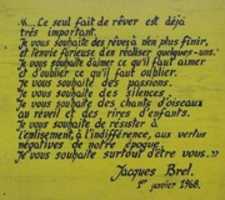 «... Le seul fait de rêver est déjà
très important.
Je vous souhaite des rêves à n'en plus finir,
et l'envie furieuse d'en réaliser quelques-uns.
Je vous souhaite d'aimer ce qu'il faut aimer
et d'oublier ce qu'il faut oublier.
Je vous souhaite des passions.
Je vous souhaite des silences.
Je vous souhaite des chants d'oiseaux
au réveil et des rires d'enfants.
Je vous souhaite de résister à
l'enlisement, à l'indifférence, aux vertus
négatives de notre époque.
Je vous souhaite surtout d'être vous.»
Jacques Brel.
1er janvier 1968.